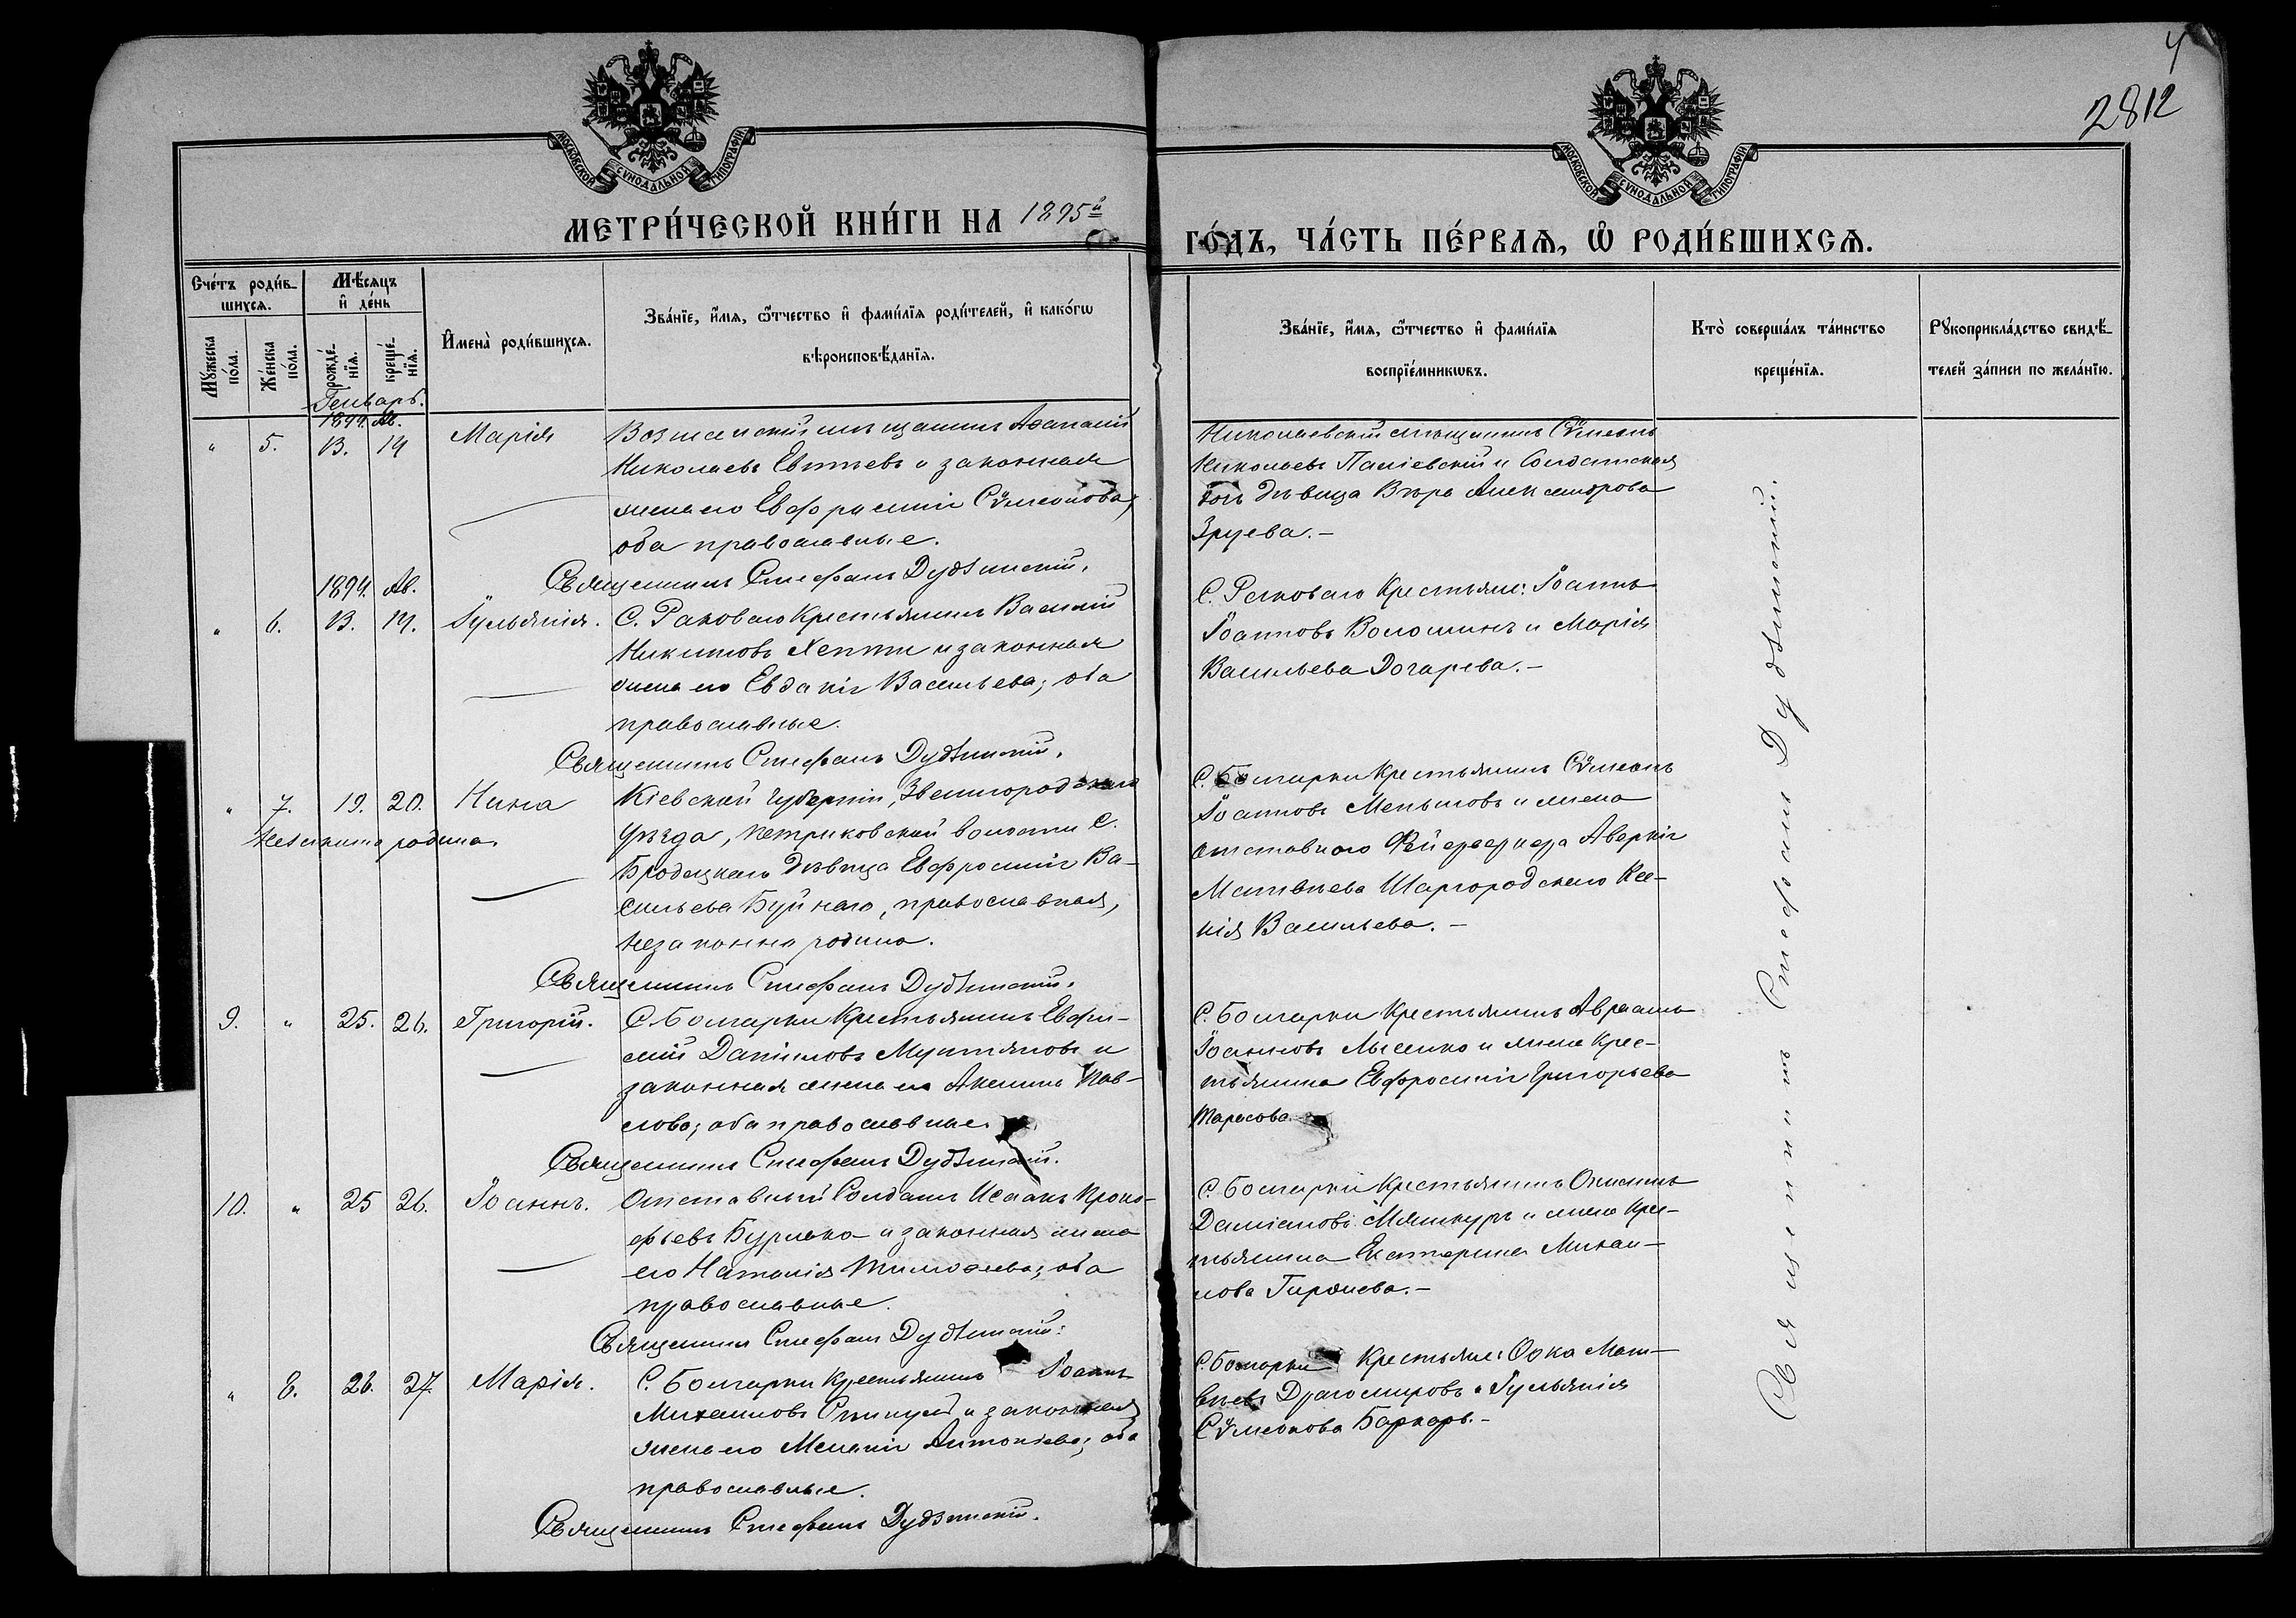 4
2812
МОСКОВСКОЙ СѴНОДАЛЬНОЙ ТИПОГРАФІИ
МОСКОВСКОЙ СѴНОДАЛЬНОЙ ТИПОГРАФІИ
МЕТРИ́ЧЕСКОЙ КНИ́ГИ НА 1895й
ГО́ДЪ, ЧА́СТЬ ПЕ́РВАѦ, Ѽ РОДИ́ВШИХСѦ.
Сче́тъ роди́в-
шихсѧ.
Мѣ́сѧцъ
и҆ де́нь
Мꙋ́жеска по́ла.
Же́нска по́ла.
рожде́-
нїѧ.
креще́-
нїѧ.
И҆мена̀ роди́вшихсѧ.
Зва́нїе, и҆́мѧ, ѻ҆́тчество и҆ фами́лїѧ роди́телей, и҆ како́гѡ
вѣроисповѣ́данїѧ.
Зва́нїе, и҆́мѧ, ѻ҆́тчество и҆ фами́лїѧ
воспрїе́мникѡвъ.
Кто̀ соверша́лъ та́инство
креще́нїѧ.
Рꙋкоприкла́дство свидѣ́-
телей за́писи по жела́нїю.
Генварь.
1894. Ав.
" 5. 13. 14 Марія
мѣщанинъ Аѳанасій
Николаевъ и законная
жена его Евфросинія Сѵмеонова,
оба православные.
Священникъ Стефанъ Дудзинскій.
Николаевскій мѣщанинъ Сѵмеонъ
Николаевъ Паліевскій и Солдатская
дочь дѣвица Вѣра Александрова
Зруева.-
1894. Ав.
" 6. 13. 14. Іуліянія.
С. Раковаго Крестьянинъ Василій
Никитовъ и законная
жена его Евдокія Васильева; оба
православные.
Священникъ Стефанъ Дудзинскій.
С. Раковаго Крестьяне: Іоаннъ
Іоанновъ Волошинъ и Марія
Васильева Догарева.-
" 7. 19. 20. Нина
Незаконно родена.
Кіевской губерніи, Звенигородскаго
уѣзда, Петриковской волости С.
Бродецкаго дѣвица Евфросинія Ва-
сильева Буйнаго, православная,
незаконно родила.
Священникъ Стефанъ Дудзинскій.
С. Болгарки Крестьянинъ Сѵмеонъ
Іоанновъ и жена
отставного Фейерверкера Аверкія
Матвѣева Шаргородскаго Ксе-
нія Васильева.-
9. " 25. 26. Григорій.
С. Болгарки Крестьянинъ Евфи-
мій Даніиловъ Мунтяновъ и
законная жена его Акилина Пав-
лова; оба православные.
Священникъ Стефанъ Дудзинскій.
С. Болгарки Крестьянинъ Авраамъ
Іоанновъ Лысенко и жена Крес-
тьянина Евфросинія Григорьева
Тарасова.-
10. " 25 26. Іоаннъ.
Отставный Солдатъ Исаакъ Проко-
фьевъ Бурлака и законная жена
его Наталія Тимоѳеева; оба
православные.
Священникъ Стефанъ Дудзинскій:
С. Болгарки Крестьянинъ
Даміановъ и жена Крес-
тьянина Екатерина Михаи-
лова
" 8. 26. 27. Марія.
С. Болгарки Крестьянинъ Іоаннъ
Михаиловъ и законная
жена его Меланія Антоніева; оба
православные.
Священникъ Стефанъ Дудзинскій.
С. Болгарки Крестьяне: Ѳока Мат-
вѣевъ Драгомировъ и Іуліянія
Сѵмеонова Баркарь.-
Священникъ Стефанъ Дудзинскій.